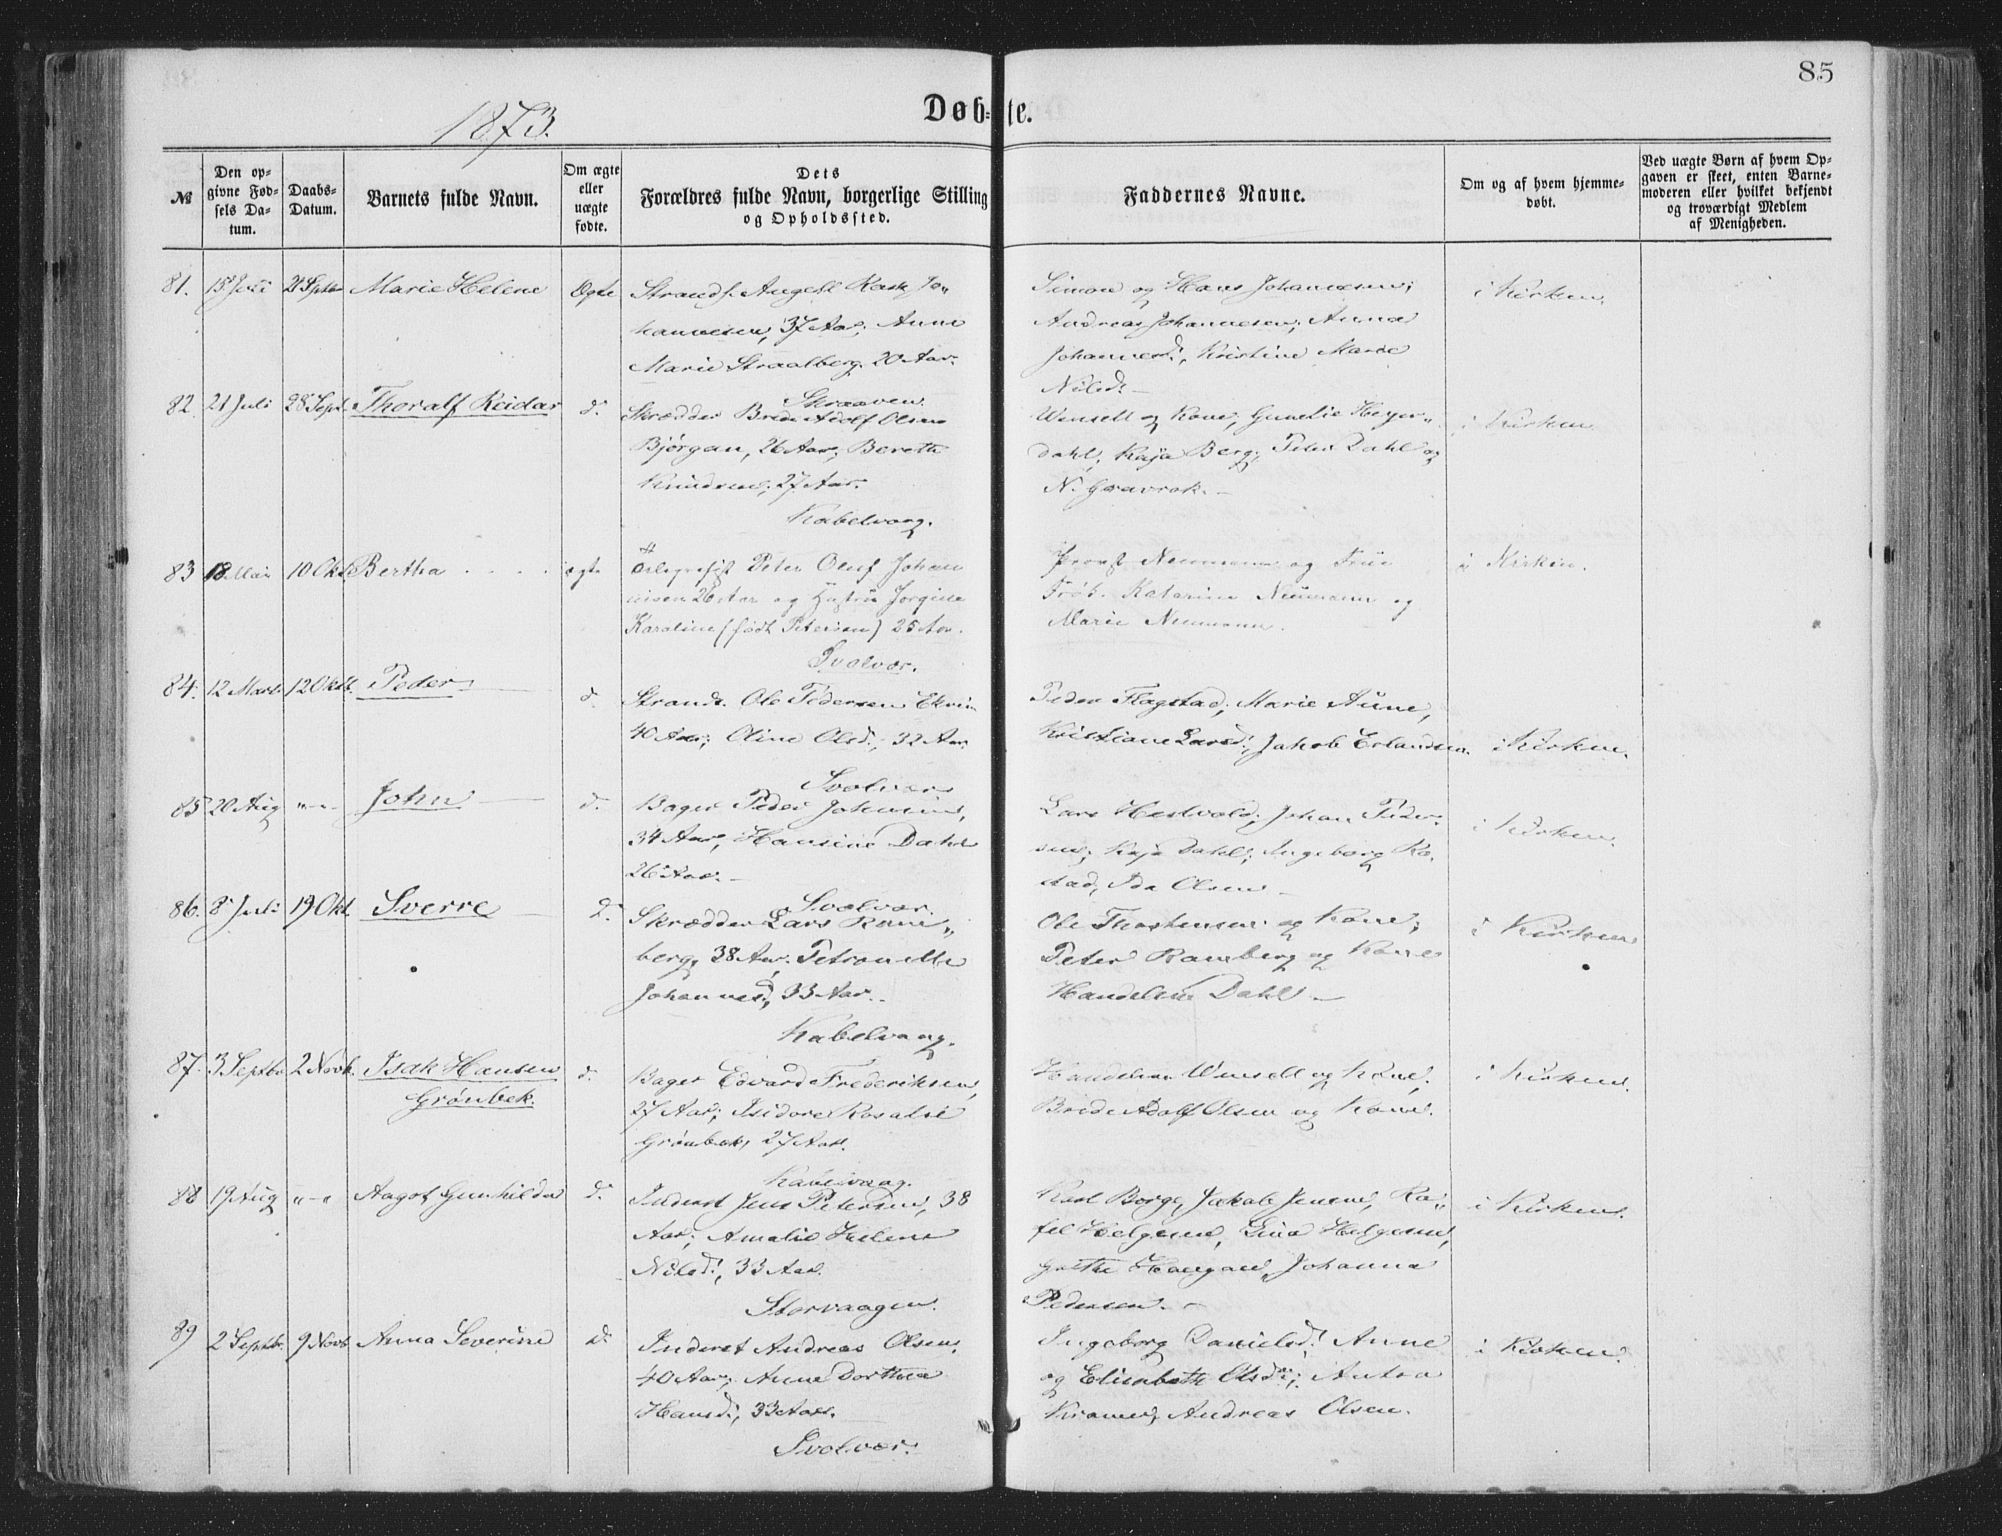 85
1873.
Døbte.
№
Den opgivne Fødsels Datum.
Daabs-Datum.
Barnets fulde Navn.
Om ægte eller uægte fødte.
Dets Forældres fulde Navn, borgerlige Stilling og Opholdssted.
Faddernes Navne.
Om og af hvem hjemmedøbt.
Ved uægte Børn af hvem Opgaven er skeet, enten Barnemoderen eller hvilket bekjendt og troværdigt Medlem af Menigheden.
81. 15 Juli 21 Septbr Marie Helene Ægte
Strands. Angell Rask Jo„
hannesen, 37 Aar, Anne
Marie Straalberg. 20 Aar.
Skraaven.
Simon og Hans Johannesen;
Andreas Johannesen; Anna
Johannesd., Kristine Marie
Nilsd. —
i Kirken.
82. 21 Juli 28 Sept. Thoralf Reidar d.
Skrædder Brede Adolf Olsen
Bjørgan, 26 Aar, Bereth
Knudsen, 27 Aar.
Kabelvaag.
Wensell og Kone, Heyer„
dahl, Kaja Berg, Peter Dahl og
N. Gravrok. —
i Kirken
83 18 Mai 10 Okt Bertha . . . . ægte
Telegrafist Peter Oluf Johan
nisen 26 Aar og Hustru Jorgine
Karoline (født Petersen) 25 Aar.
Svolvær.
Provst Neumann og Frue
Frøk. Katarine Neumann og
Marie Neumann.
i Kirken.
84. 12 Marts 12 Oktb. Peder d.
Strands. Ole Pedersen
40 Aar; Oline Olsd., 32 Aar
Svolvær
Peder Flagstad, Marie Aune,
Kristiane Larsd., Jakob Erlandsen.
i Kirken.
85 20 Aug „-„- John — d.
Bager Peder Johnsen,
34 Aar, Hansine Dahl
26 Aar. —
Svolvær.
Lars Hestvold, Johan Peder-
sen, Kaja Dahl, Ingeborg Ra-
stad, Ida Olsen —
i Kirken.
86. 8 Juli 19 Okt. Sverre — d.
Skrædder Lars Rane„
berg, 38 Aar. Petronelle
Johannesd., 33 Aar. -
Kabelvaag.
Ole Thostensen og Kone,
Peter Ramberg og Kone
Handelsm. Dahl —
i Kirken
87. 3 Septbr 2 Novb. Isak Hansen
Grønbek. d.
Bager Edvard Frederiksen,
27 Aar; Isidore Rosalie
Grønbek, 27 Aar.
Handelsm. Wensell og Kone,
Brede Adolf Olsen og Kone.
i Kirken.
88 19 Aug „-„ Aagot Gunhilda d.
Inderst Jens Petersen, 38
Aar; Amalie Helene
Nilsd., 33 Aar.
Storvaagen.
Karl Borge, Jakob Jensen, Ra„
fel Helgesen, Lina Helgesen,
Johanna
Pedersen. —
i Kirken.
89 2 Septbr. 9 Novb Anna Severine d.
Inderst Andreas Olsen,
40 Aar, Anne Dorthea
Hansd., 33 Aar.
Svolvær.
Ingeborg Danielsd. Anne
og Elisabeth Olsd.; Anton
Kramer, Andreas Olsen.
i Kirken.